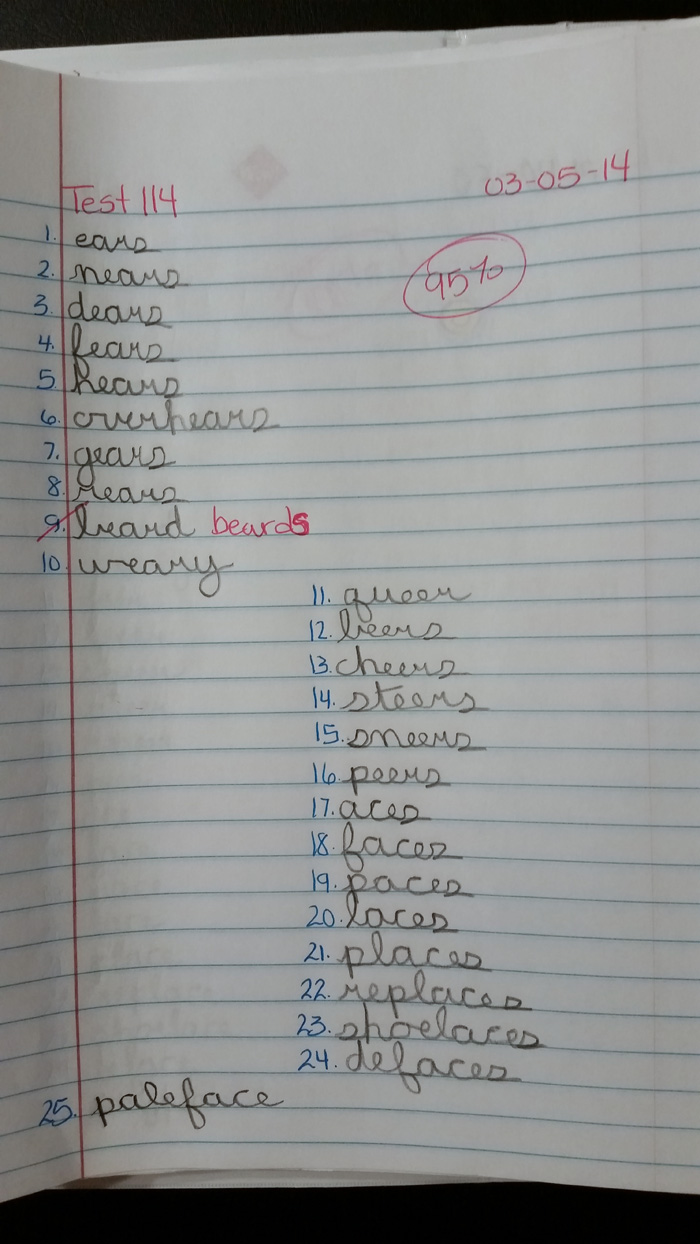 Test 114 03-05-14
95%
1. ears
2. nears
3. dears
4. fears
5. hears
6. overhears
7. gears
8. rears
9. beard beards
10. weary
11. queer
12. beers
13. cheers
14. steers
15. sneers
16. peers
17. aces
18. faces
19. paces
20. laces
21. places
22. replaces
23. shoelaces
24. defaces
25. paleface